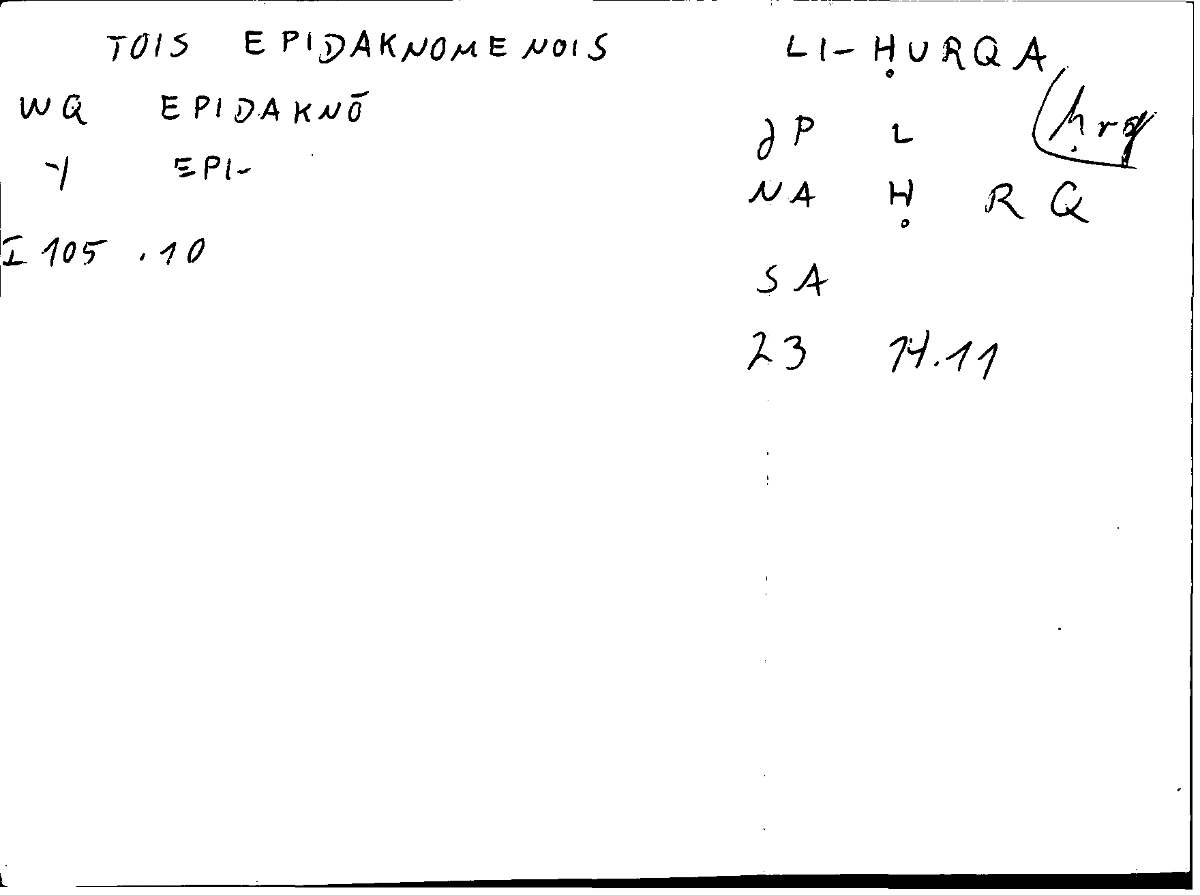 TOIS EPIDAKNOMENOIS
WQ EPIDAKNŌ
EPI-
I 105 .10
LI-ḤURQA
ḥrq
P L
NA Ḥ R Q
SA
23 14.11